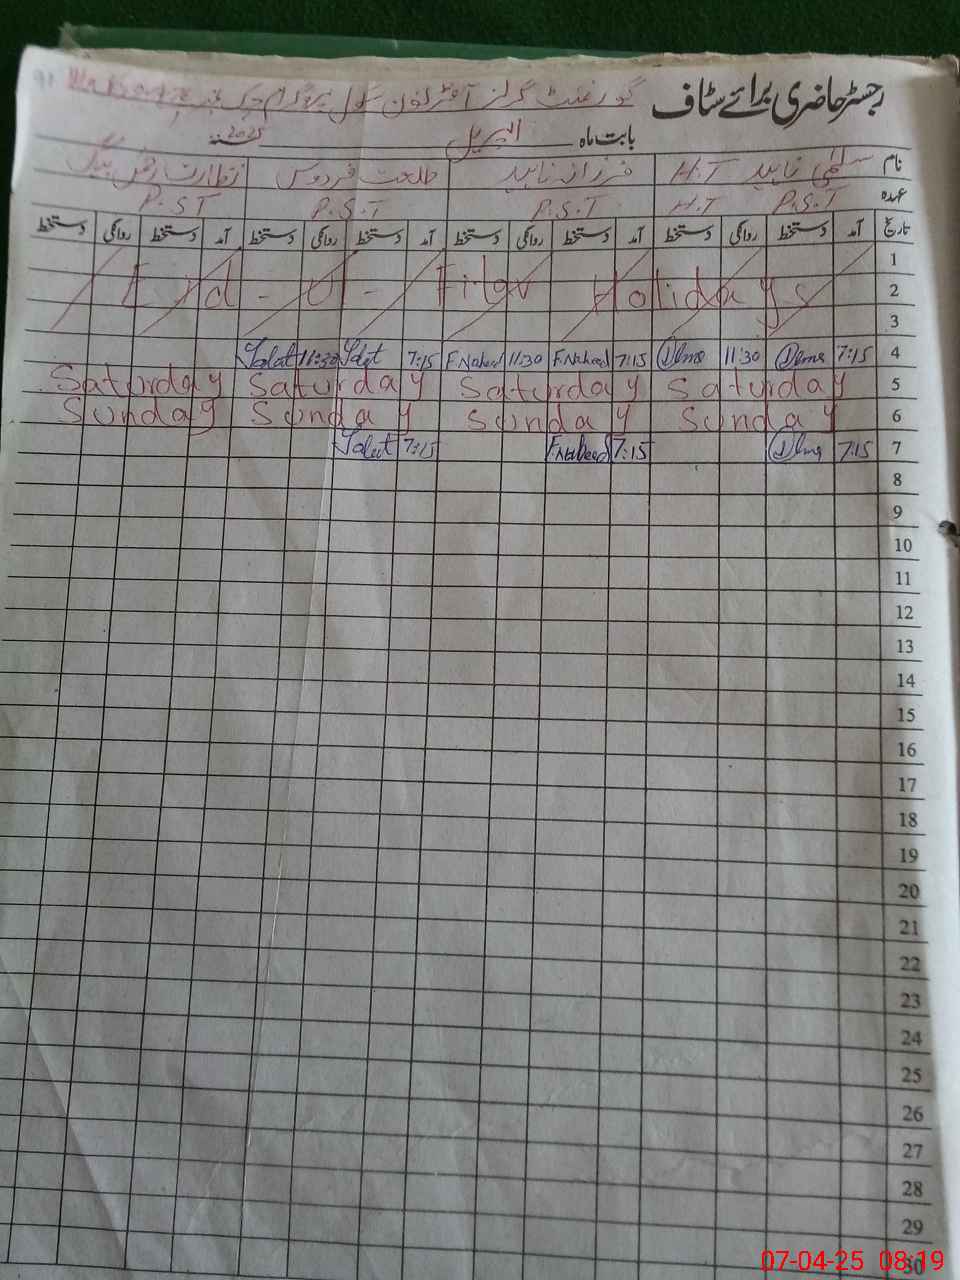 رجسٹر حاضری برائے سٹاف گورنمنٹ گرلز آفٹر نون سکول پروگرام چک نمبر
بابت ماہ اپریل سنہ 2025
نام سلمیٰ ناہید H.T فرزانہ ناہید طلعت فردوس
عہدہ P.S.T H.T P.S.T P.S.T P.S.T
تاریخ آمد دستخط روانگی دستخط آمد دستخط روانگی دستخط آمد دستخط روانگی دستخط آمد دستخط روانگی دستخط
1
Eid - Ul - Fitar Holidays 2
3
Talat 11:30 Talat 7:15 F.Naheed 11:30 F.Naheed 7:15 11:30 7:15 4
Saturday Saturday Saturday Saturday 5
Sunday Sunday Sunday Sunday 6
Talat 7:15 F.Naheed 7:15 7:15 7
8
9
10
11
12
13
14
15
16
17
18
19
20
21
22
23
24
25
26
27
28
29
30
07-04-25 08:19